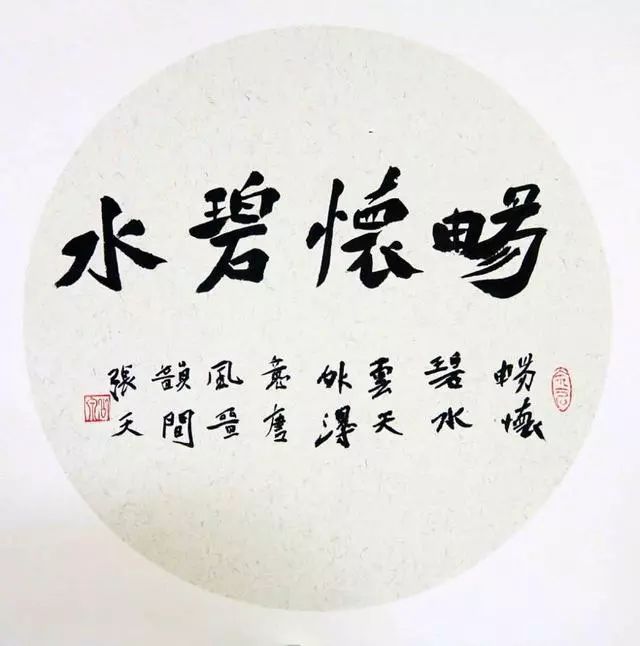 暢懷碧水
暢懷
碧水
雲天
外得
意唐
風晉
韻間
張天